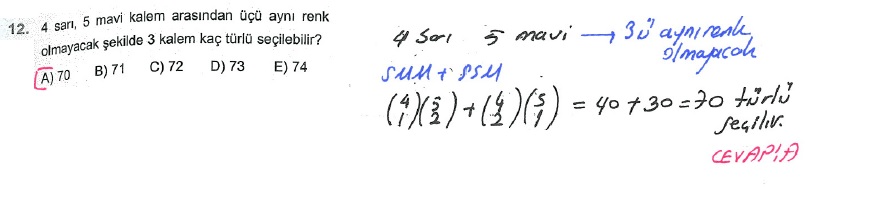 12. 4 sarı, 5 mavi kalem arasından üçü aynı renk
olmayacak şekilde 3 kalem kaç türlü seçilebilir?
A) 70 B) 71 C) 72 D) 73 E) 74
4 sarı 5 mavi → 3ü aynı renk
olmayacak
SMM + SSM
(4 1)(5 2) + (4 2)(5 1) = 40 + 30 = 70 türlü
seçilir.
CEVAP: A